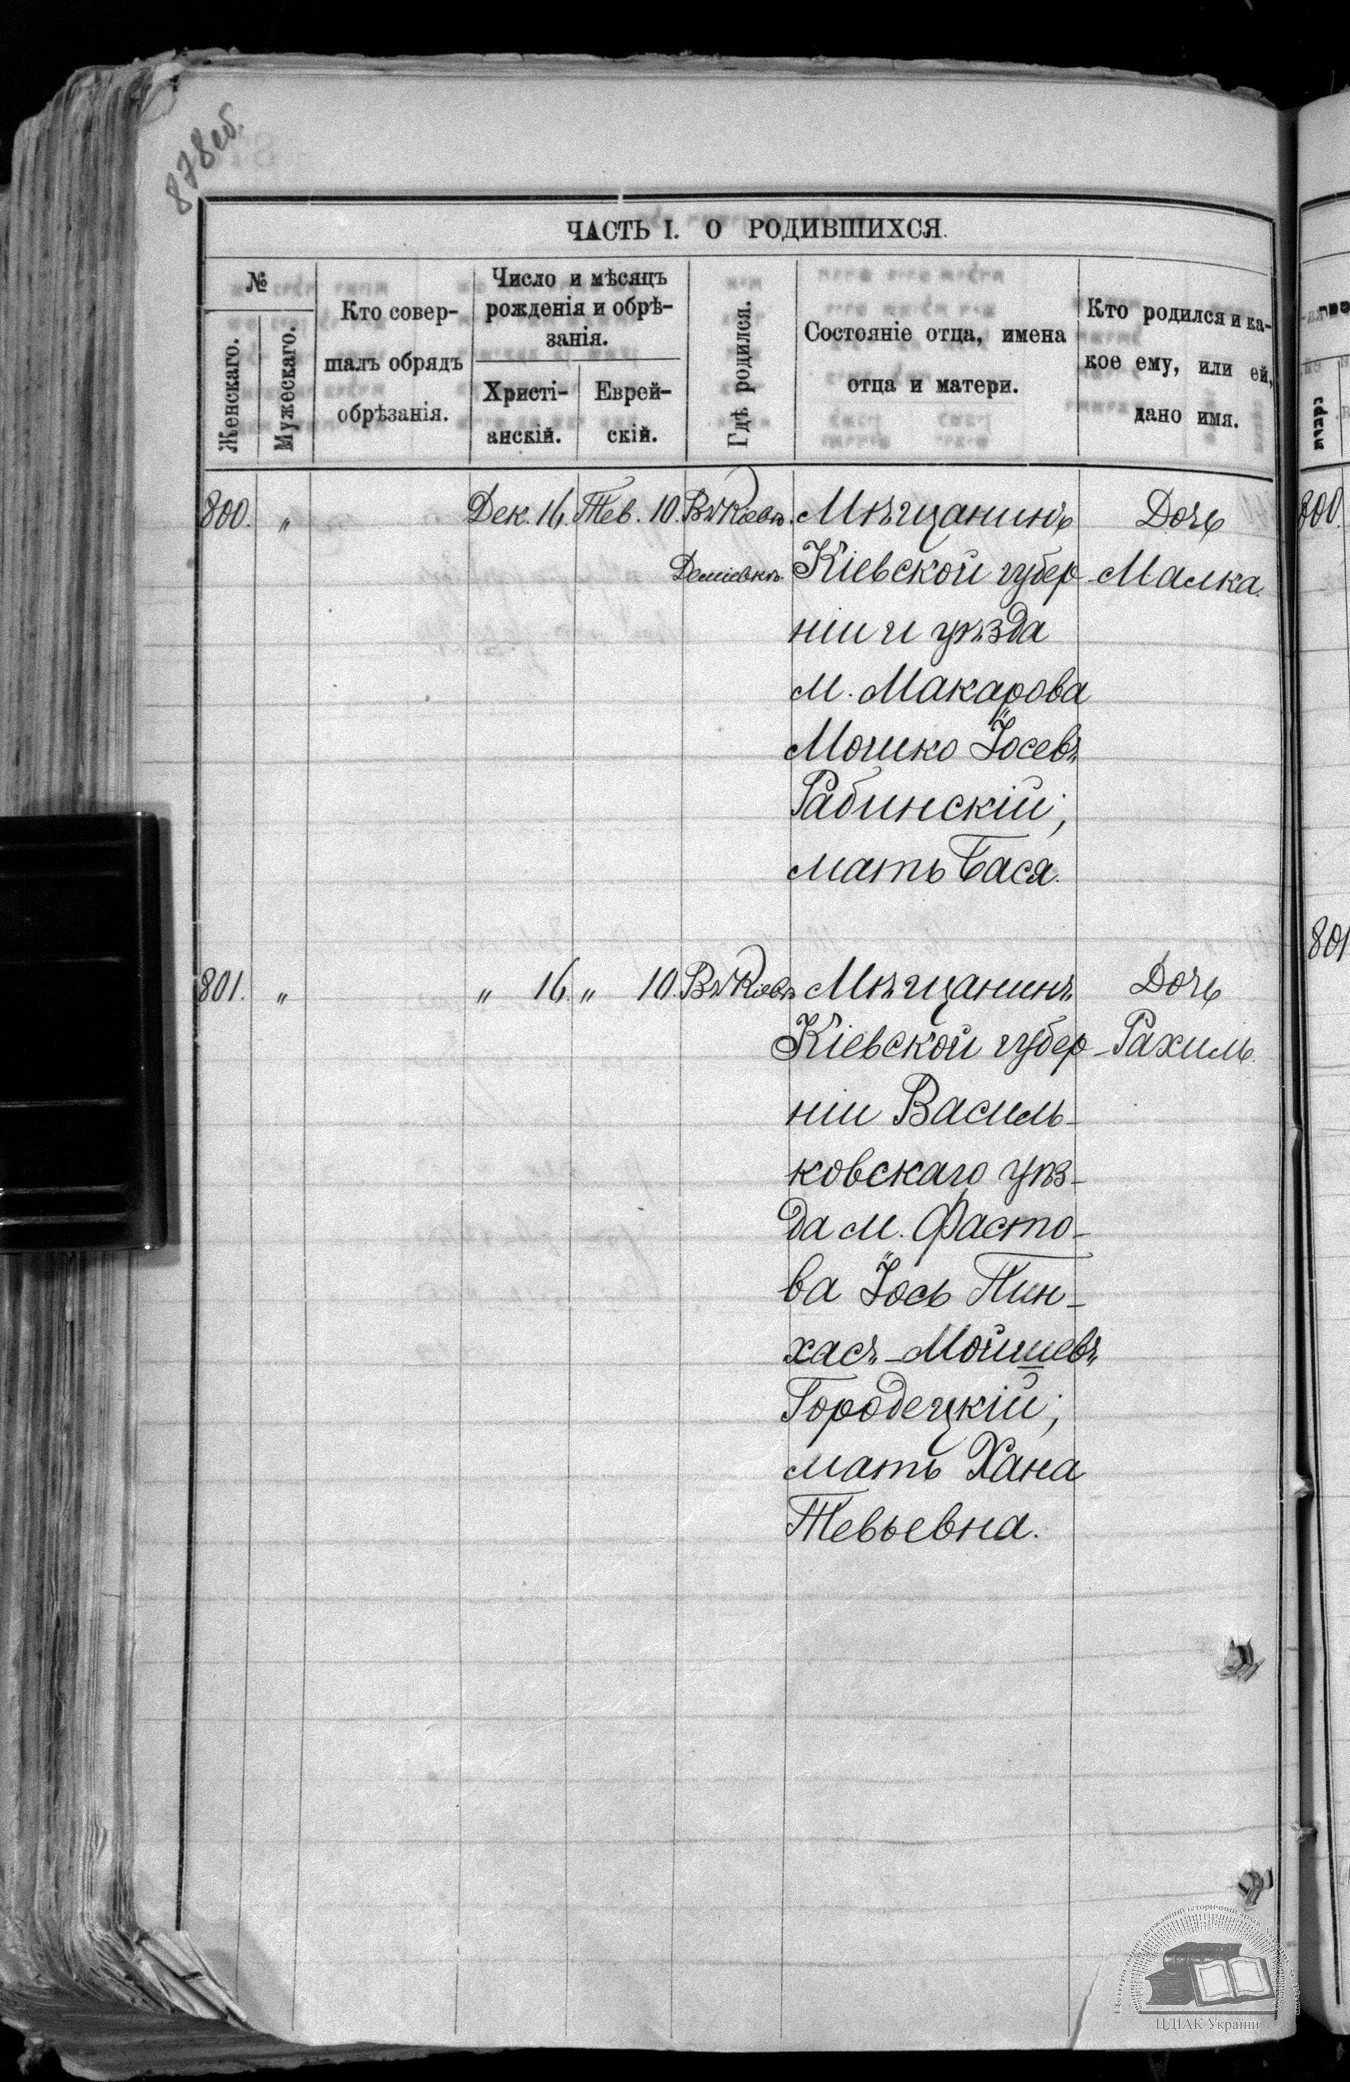 878об.
ЧАСТЬ I. О РОДИВШИХСЯ.
№
Женскаго.
Мужескаго.
Кто совер-
шалъ обрядъ
обрѣзанія.
Число и мѣсяцъ
рожденія и обрѣ-
занія.
Христі-
анскій.
Еврей-
скій.
Гдѣ родился.
Состояніе отца, имена
отца и матери.
Кто родился и ка-
кое ему, или ей,
дано имя.
800. „ Дек. 16. Тев. 10. Въ Кіевѣ. Мѣщанинъ Дочь
Деміевкѣ. Кіевской губер- Малка.
ніи и уѣзда
м. Макарова
Мошко Іосевъ
Рабинскій;
мать Бася.
801. „ „ 16. „ 10. Въ Кіевѣ Мѣщанинъ Дочь
Кіевской губер- Рахиль.
ніи Василь-
ковскаго уѣз-
да м. Фасто-
ва Іось Пин-
хасъ-Мойшевъ
Городецкій;
мать Хана
Тевьевна.
800.
801
ЦДІАК України